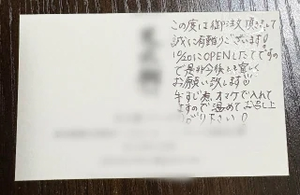 この度は御注文頂きまして
誠に有難うございます!
10/20にOPENしたてですの
で是非今後とも宜しく
お願い致します
牛すじ煮、オマケで入れて
ますので温めてお召し上
がり下さい!